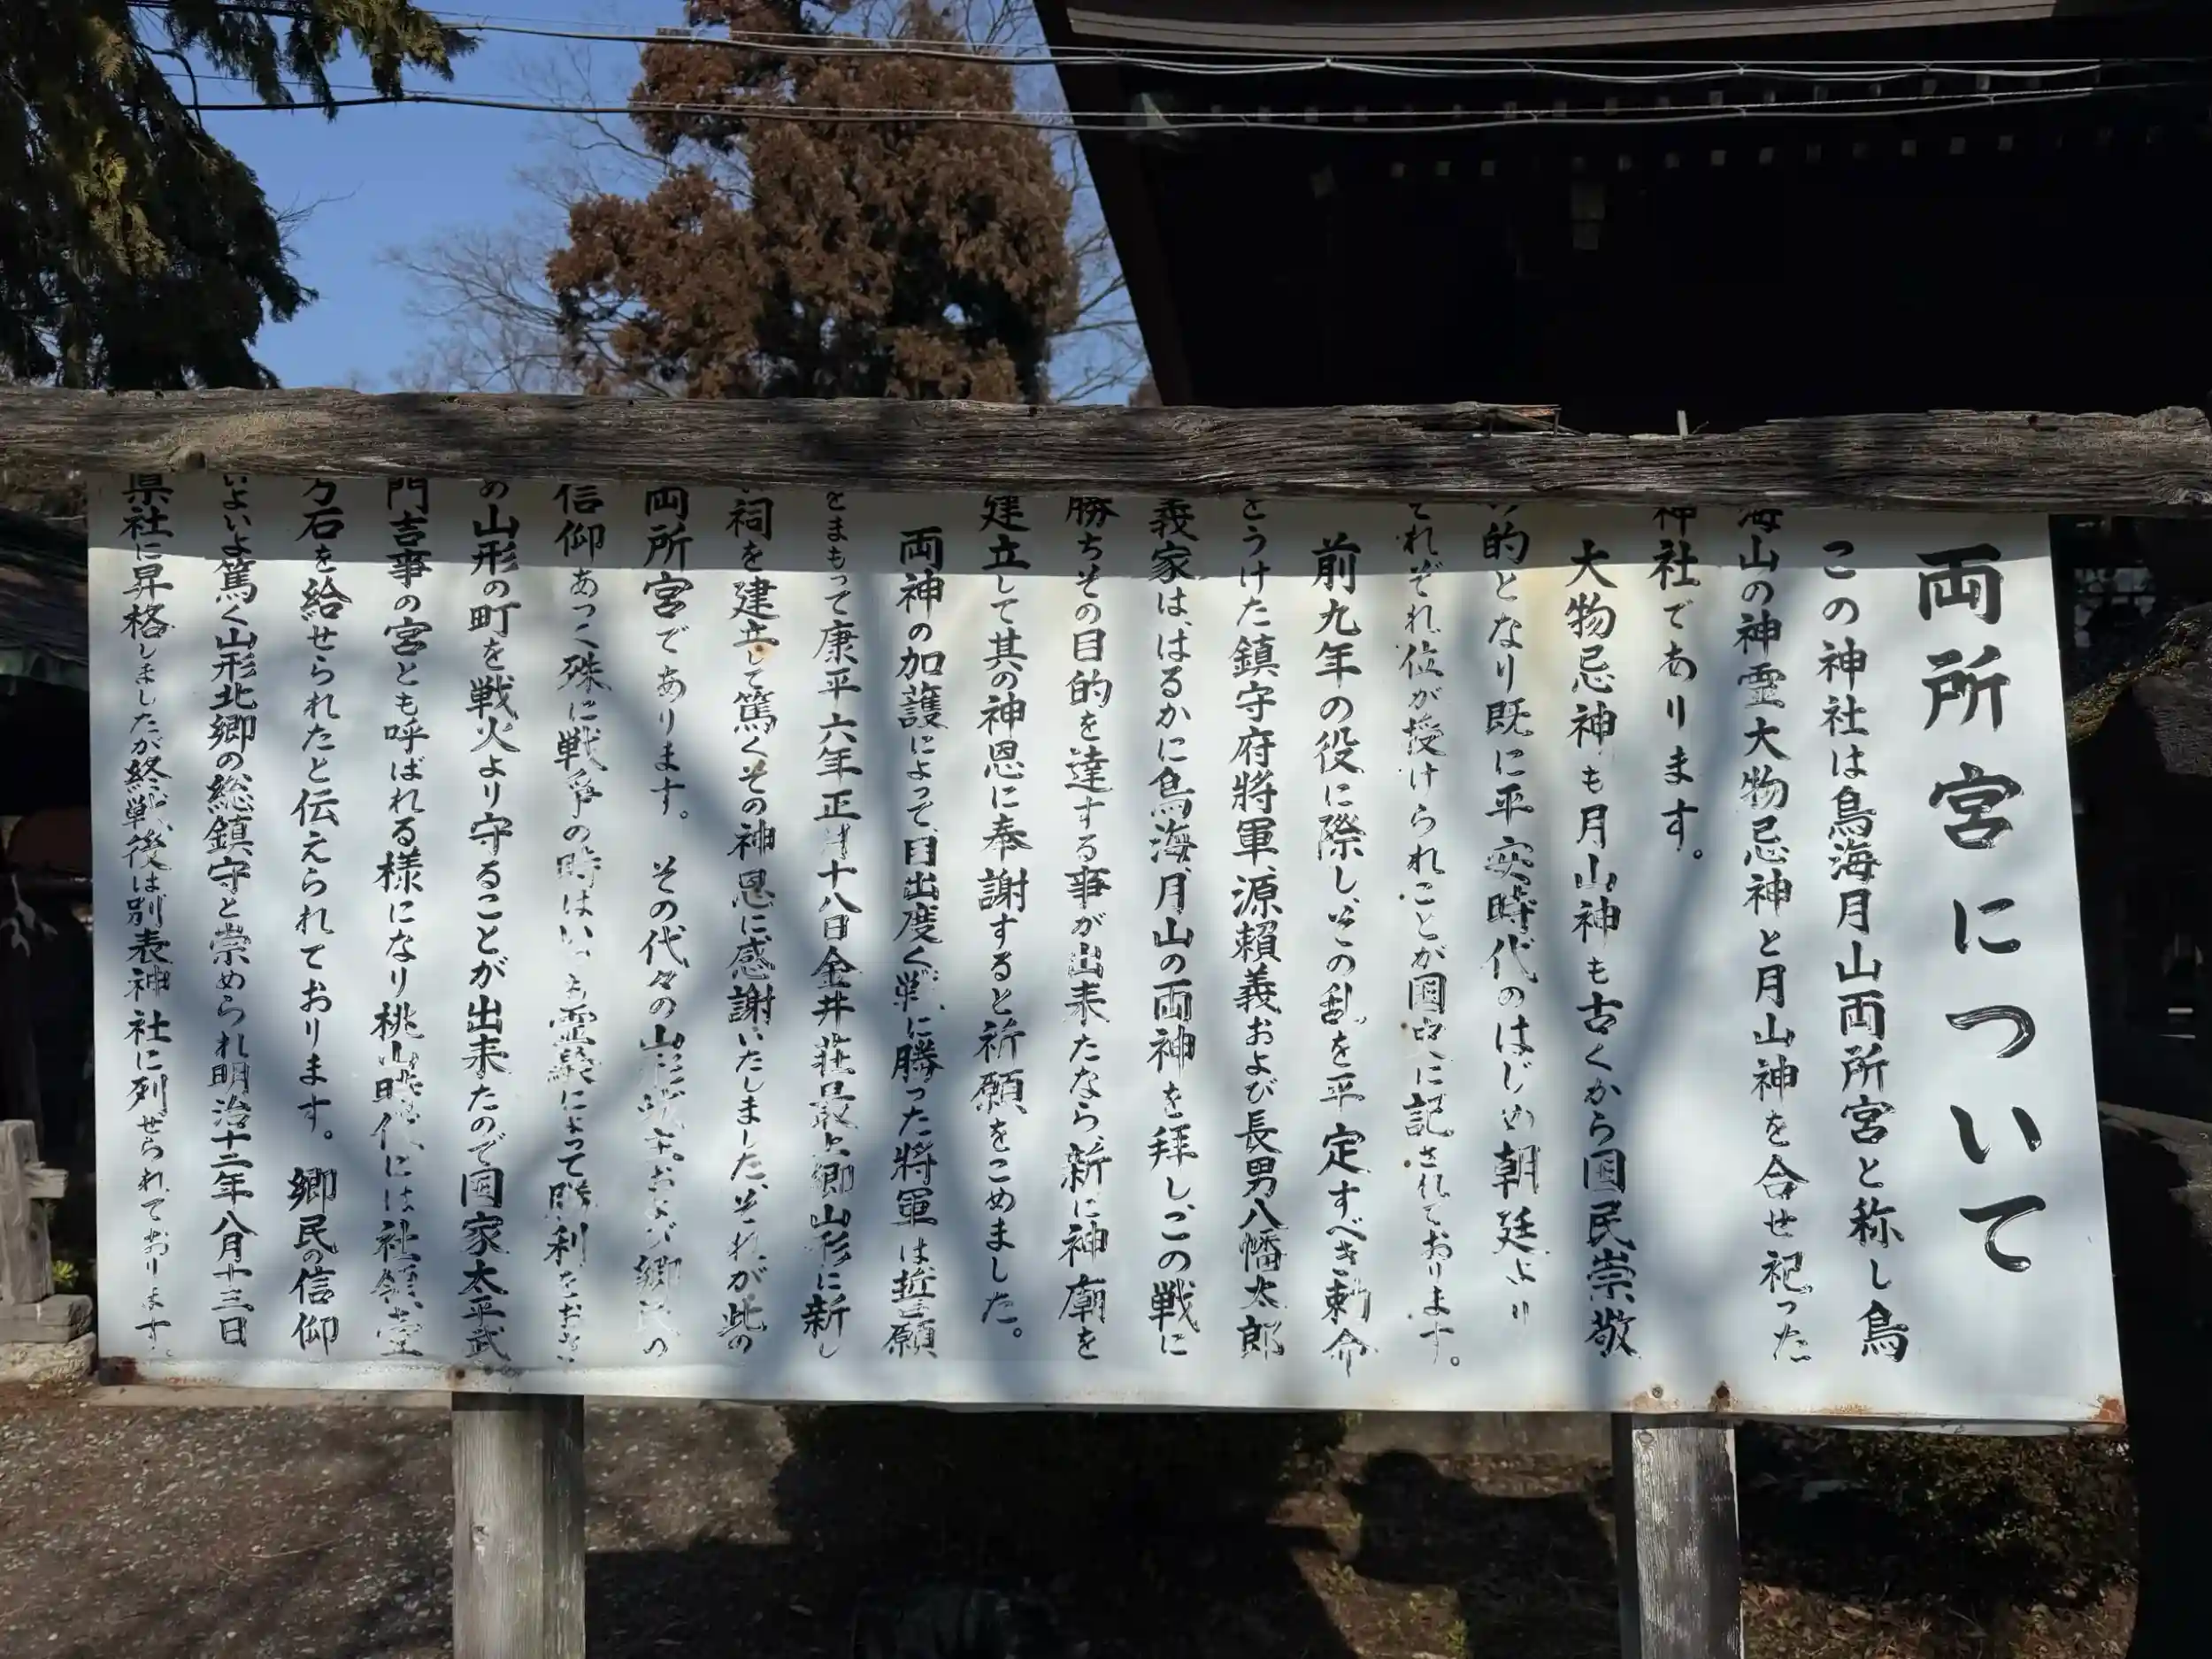 両所宮について
この神社は鳥海月山両所宮と称し鳥
海山の神霊大物忌神と月山神を合せ祀った
神社であります。
大物忌神も月山神も古くから国民崇敬
的となり既に平安時代のはじめ朝廷より
それぞれ位が授けられことが国史に記されております。
前九年の役に際し、その乱を平定すべき勅命
をうけた鎮守府将軍、源頼義および長男八幡太郎
義家は、はるかに鳥海、月山の両神を拝し、この戦に
勝ちその目的を達する事が出来たなら、新に神廟を
建立して其の神恩に奉謝すると祈願をこめました。
両神の加護によって、目出度く戦に勝った将軍は誓願
をまもって康平六年正月十八日金井荘最上郷山形に新し
祠を建立して篤くその神恩に感謝いたしました、それが此の
両所宮であります。 その代々の山形城主および郷民の
信仰あつく殊に戦争の時はいつも霊験によって勝利をおさ
の山形の町を戦火より守ることが出来たので国家太平武
門吉事の宮とも呼ばれる様になり桃山時代には社領壹
万石を給せられたと伝えられております。 郷民の信仰
いよいよ篤く山形北郷の総鎮守と崇められ明治十二年八月十三日
県社に昇格しましたが終戦後は別表神社に列せられております。